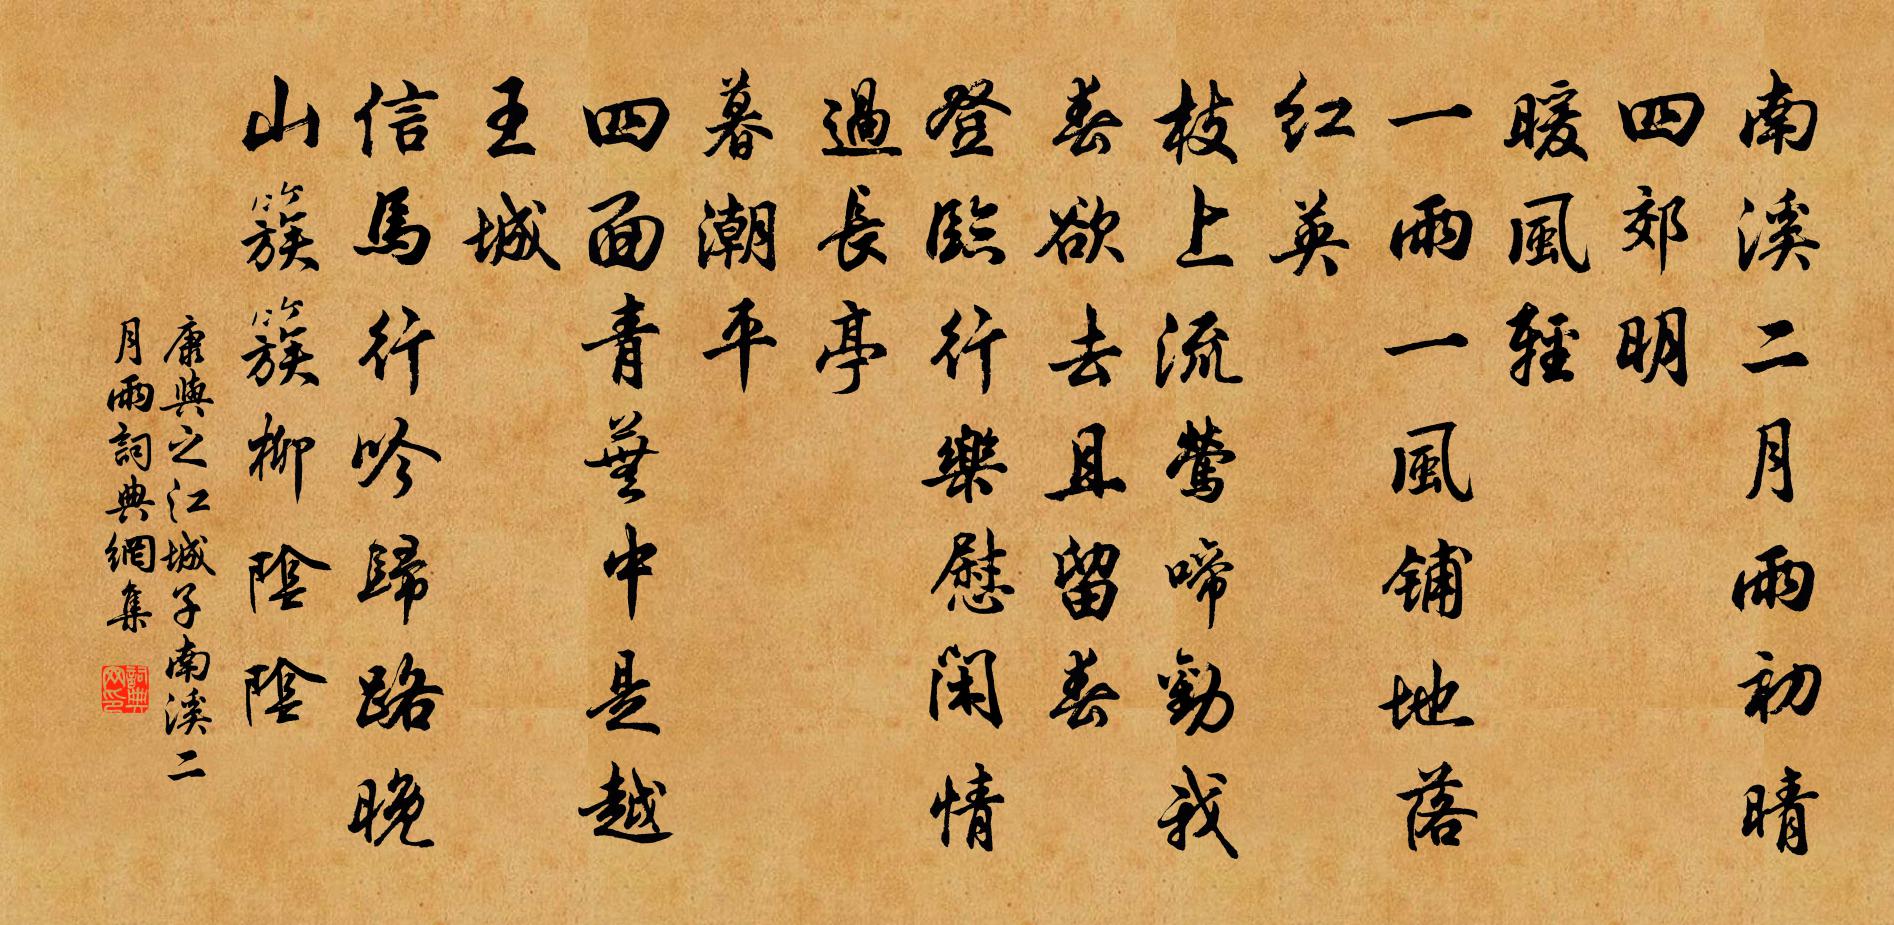 南溪二月雨初晴
四郊明
暖風輕
一雨一風鋪地落
紅英
枝上流鶯啼勸我
春欲去且留春
登臨行樂慰閑情
過長亭
暮潮平
四面青蕪中是越
王城
信馬行吟歸路晚
山簇簇柳陰陰
康與之江城子南溪二
月雨詞典網集
詞典
网印